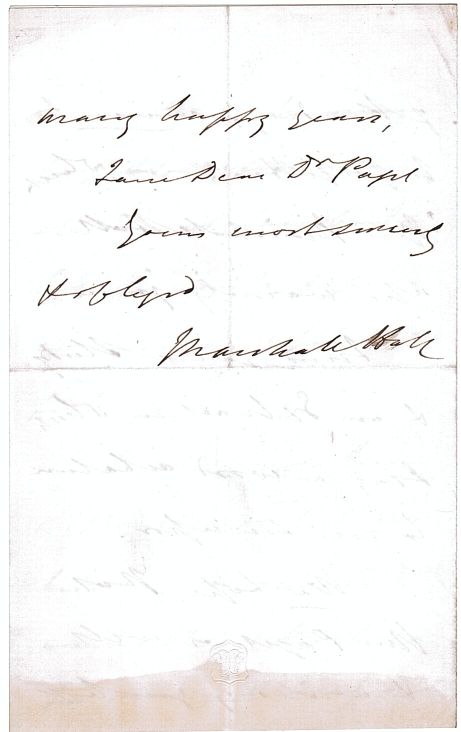 many happy years,
I am Dear Dr Page
Yours most sincerely
& obliged
Marshall Hall